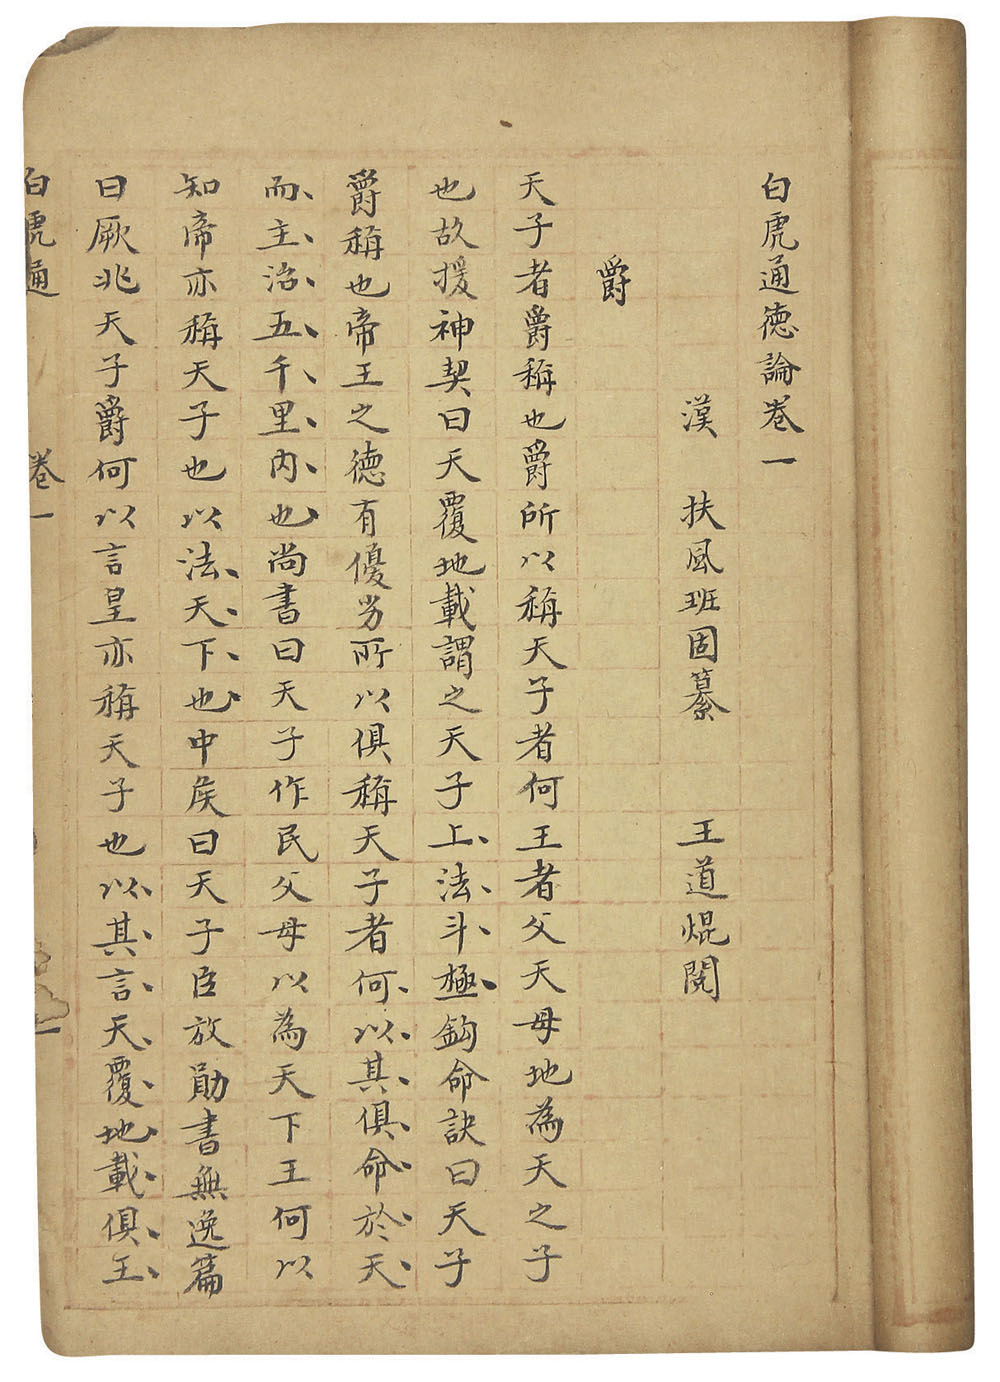 白虎通德論卷一
漢 扶風班固纂 王道焜閱
爵
天子者爵稱也爵所以稱天子者何王者父天母地為天之子
也故援神契曰天覆地載謂之天子上法斗極鈎命訣曰天子
爵稱也帝王之德有優劣所以俱稱天子者何以其俱命於天
而主治五千里內也尚書曰天子作民父母以為天下王何以
知帝亦稱天子也以法天下也中侯曰天子臣放勛書無逸篇
曰厥兆天子爵何以言皇亦稱天子也以其言天覆地載俱王
白虎通 卷一